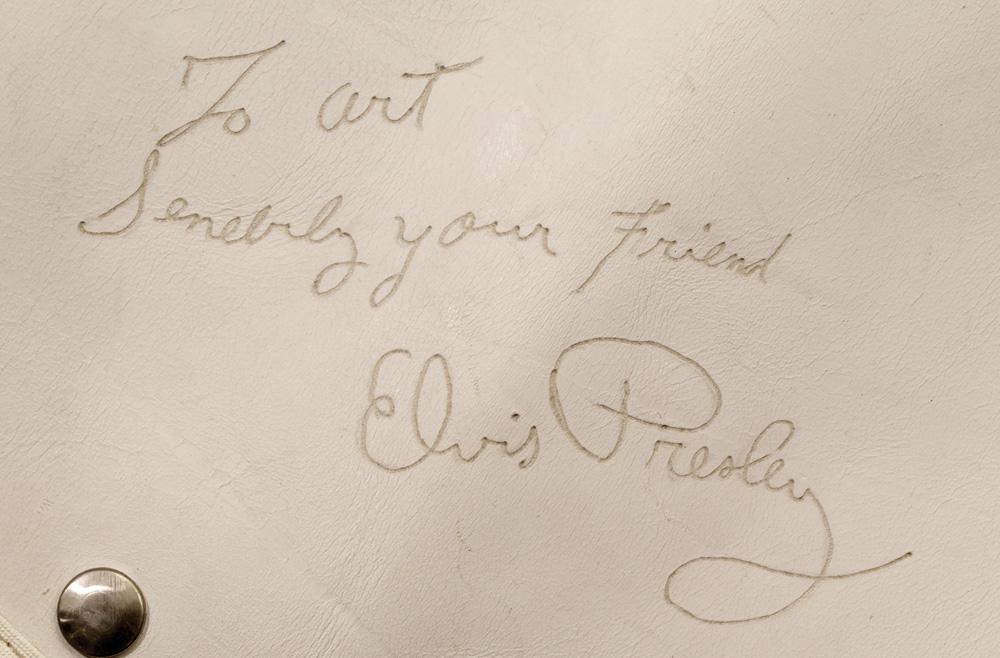 To art
Sencbrly your Friend
Elvis Presley